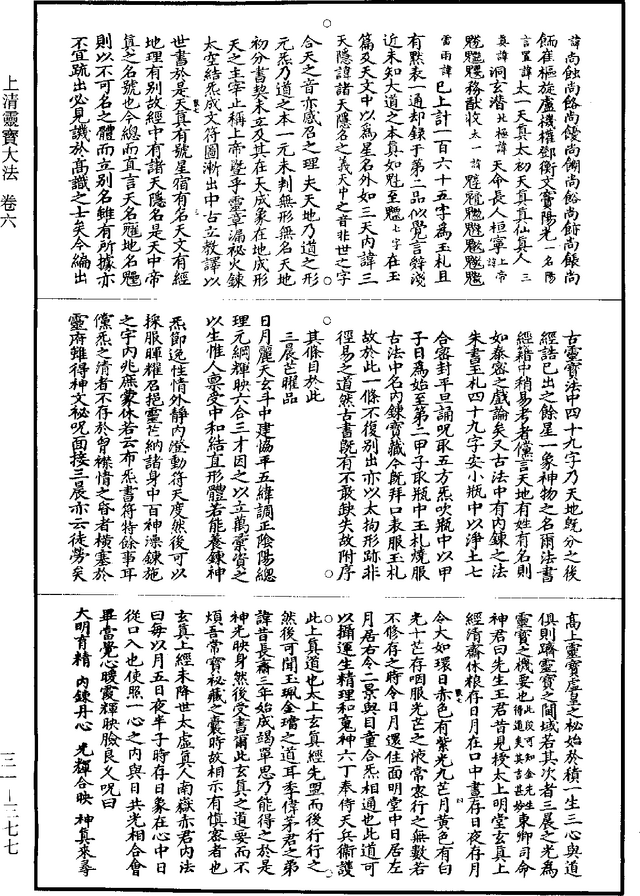 言罡諱太一天真太初天真真仙真人三
有黙表一通却録于第二品似覺言辭淺
近未知大道之本真如魁至魒七字在玉
篇及天文中以爲星名外如三天内諱三
天隱諱諸天隱名之義天中之音非世之字
合天之音亦感召之理夫天地乃道之形
元炁乃道之本一元未判無形無名天地
初分書契未立及其在天成象在地成形
天之主宰止稱上帝暨乎靈章漏祕火鍊
太空結炁成文符圖漸出中古立教譯以
世書於是天真有號星宿有名天文有經
地理有別故經中有諸天隱名是天中帝
真之名號也今總而直言天名雁地名魒
則以不可名之體而立别名雖有所據亦
不宜疏出必見譏於高識之士矣今編出
古靈寶法中四十九字乃天地旣分之後
經誥已出之餘星一象神物之名爾法書
經籍中稍易考者儻言天地有姓有名則
如秦宓之戲論矣又古法中有内鍊之法
朱書玉札四十九字安小瓶中以淨土七
合密封平旦誦呪取五方炁吹瓶中以甲
子日為始至第二甲子取瓶中玉札燒服
古法中名内鍊寶藏今旣拜口表服玉札
故於此一條不復别出亦以太拘形跡非
徑易之道然古書旣有不敢缺失故附序
其條目於此
三晨芒曜品
日月麗天玄斗中建協平五緯調正陰陽總
理元綱輝映六合三才因之以立萬彙資之
以生惟人禀受中和結直形體若能養鍊神
炁節逸性情外靜内澄動符天度然後可以
採服暉耀召挹靈芒納諸身中百神溧鍊施
之宇内兆庶蒙休若云布炁書符特餘事耳
儻炁之清者不存於曾襟情之昏者橫塞於
靈府雖得神文秘呪面接三晨亦云徒勞矣
高上靈寶虛皇之秘始於積一生三心與道
俱則躋靈寶之閫域若其次者三晨之光為
靈寶之機要也此段可知金先生得道矣其言甚妙東卿司命
神君曰先生王君昔見授太上明堂玄真上
經清齋休粮存日月在口中晝存日夜存月
令大如環日赤色有紫光九芒月黄色有白
光十芒存咽服光芒之液常密行之無數若
不修存之時令日月還住面明堂中日居左
月居右令二景與目童合炁相通也此道可
以攝運生精理和䰟神六丁奉侍天兵衛護
此上真道也太上玄真經先盟而後行行之
然後可聞玉珮金璫之道耳季偉茅君之弟
諱昔長齋三年始成竭單思乃能得之於是
神光映身然後受書爾此玄真之道要而不
煩吾常寶祕藏之囊時故相示有慎密者也
玄真上經未降世太虛真人南嶽赤君内法
曰每以月五日夜半子時存日象在心中日
從口入也使照一心之内與日共光相合會
畢當覺心暖霞輝映臉良久呪曰
大明育精 内鍊丹心 光輝合映 神真來尋
上清靈寶大法 卷六
三一—三七七